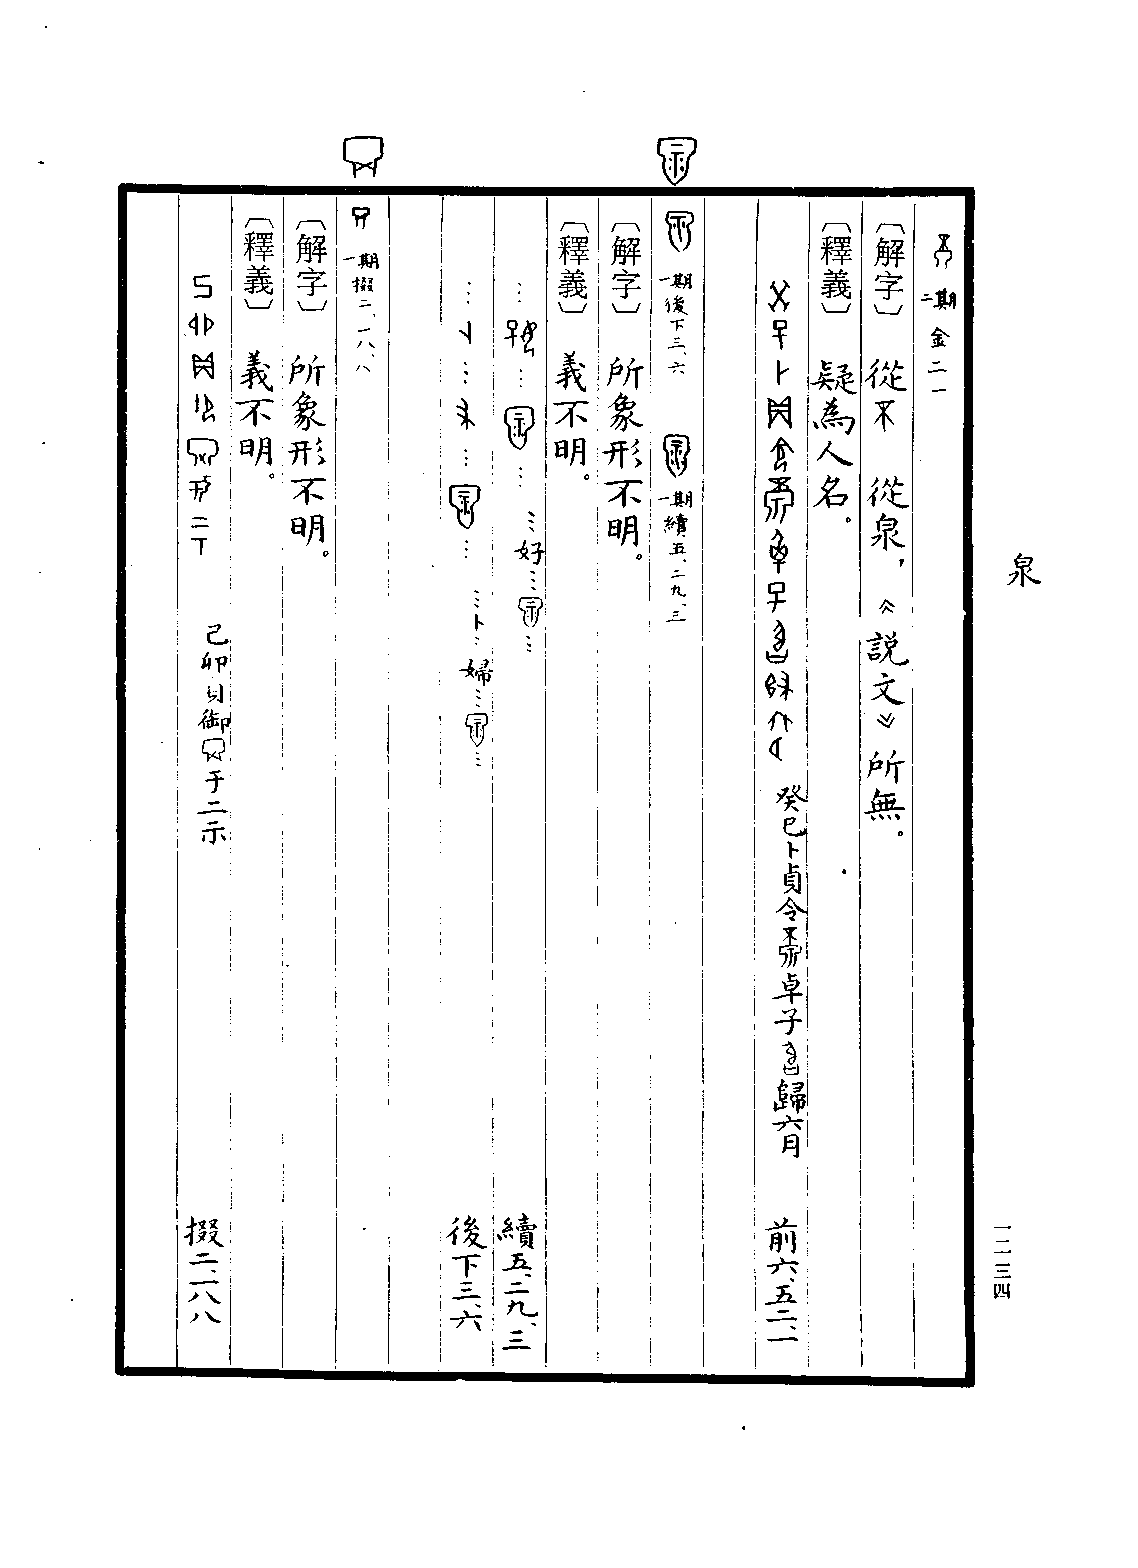 泉
一二三四
二期 金二一
〔解字〕 從不 從泉，《説文》所無。
〔釋義〕 疑為人名。
癸巳卜貞令卓子歸六月 前六、五二、一
一期 後下三、六 一期 續五、二九、三
〔解字〕 所象形不明。
〔釋義〕 義不明。
…好…… 續五、二九、三
…卜…婦…… 後下三、六
一期 掇二、一八八
〔解字〕 所象形不明。
〔釋義〕 義不明。
己卯貞御于二示 掇二、一八八